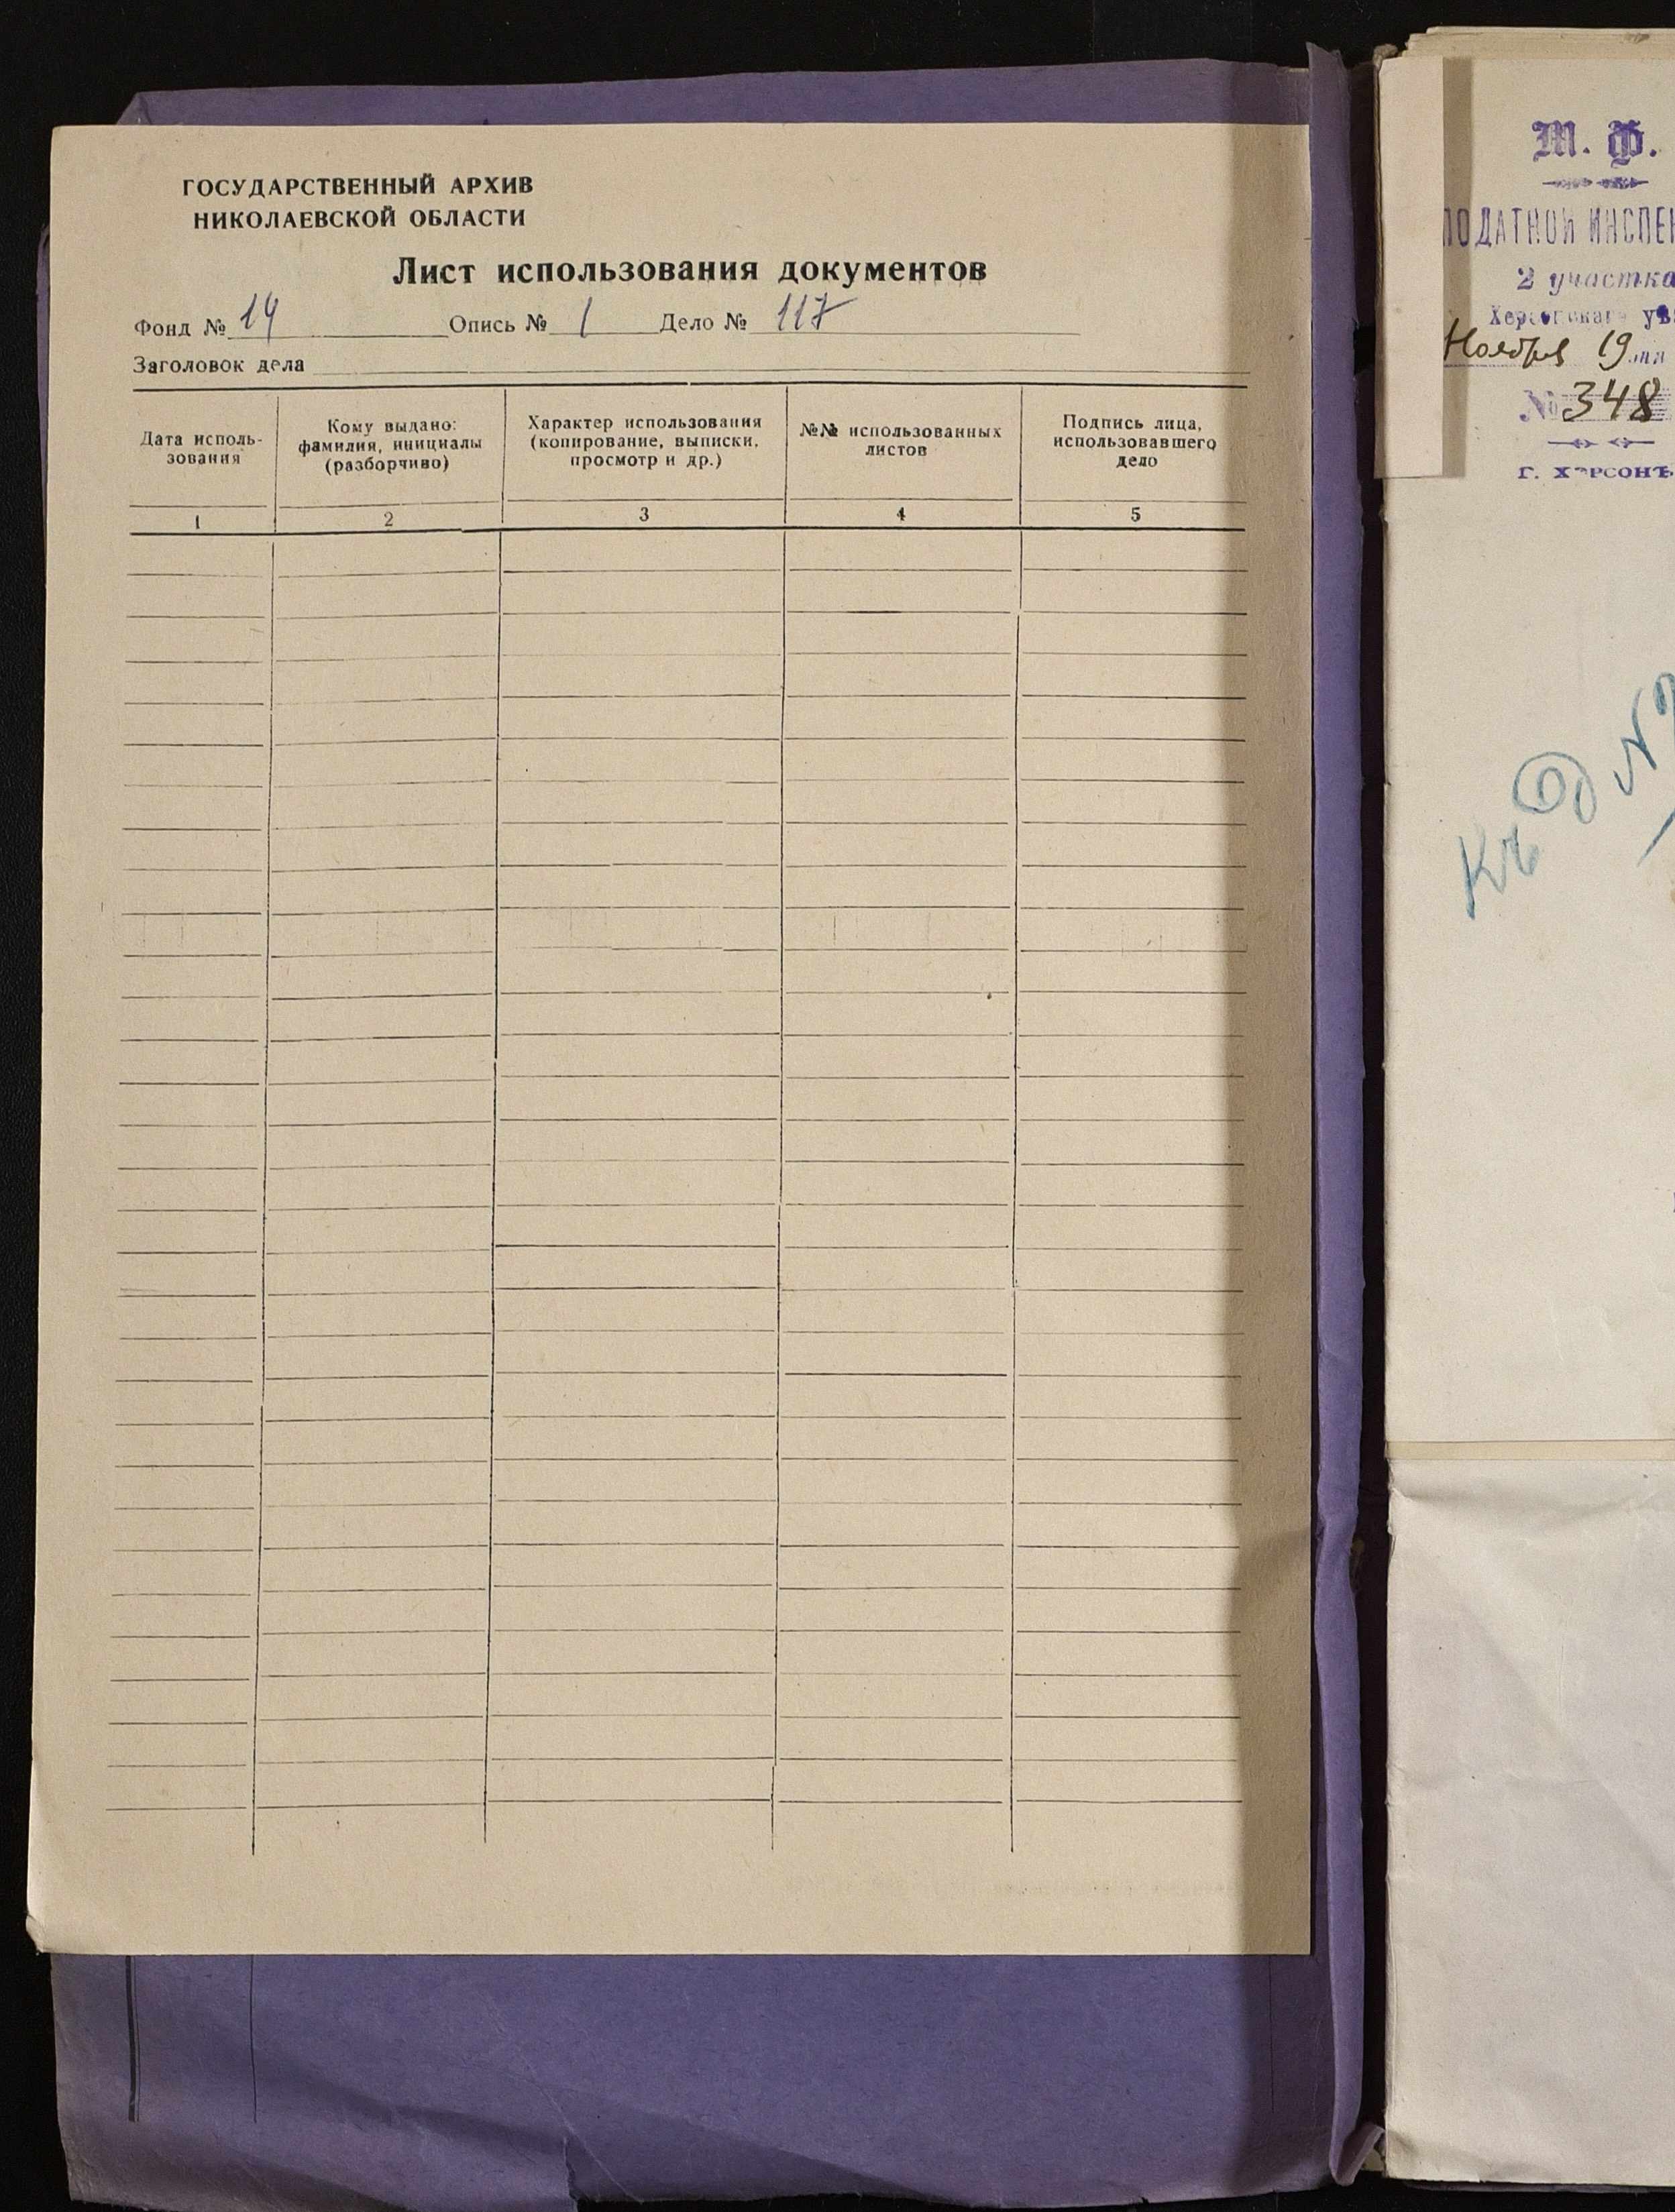 ГОСУДАРСТВЕННЫЙ АРХИВ
НИКОЛАЕВСКОЙ ОБЛАСТИ
Лист использования документов
Фонд № 19 Опись № 1 Дело № 117
Заголовок дела
Дата исполь-
зования
Кому выдано:
фамилия, инициалы
(разборчиво)
Характер использования
(копирование, выписки,
просмотр и др.)
№№ использованных
листов
Подпись лица,
использовавшего
дело
1 2 3 4 5
М. Ф.
ПОДАТНОЙ ИНСПЕ
2 участка
Херсонскаго уѣ
Ноября 19 дня
№ 348
Г. ХЕРСОНЪ
Къ д №